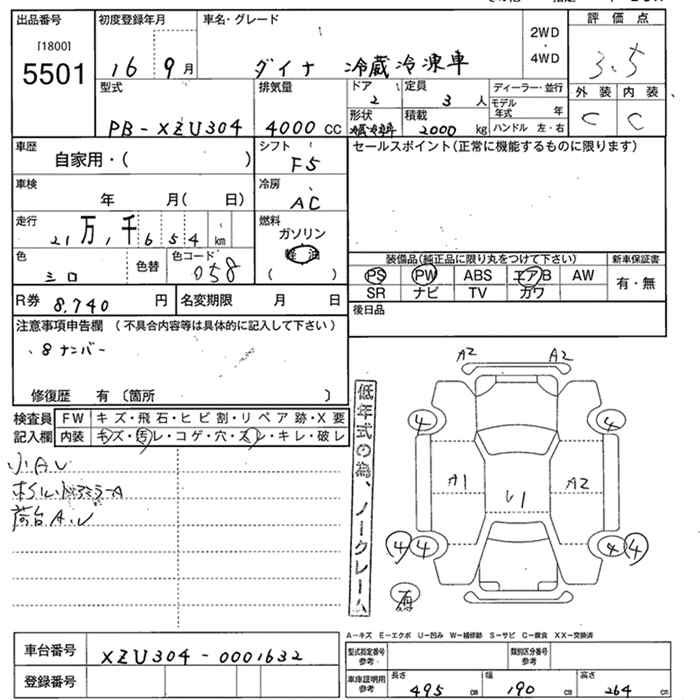 出品番号 初度登録年月 車名・グレード 2WD・4WD 評価点
[1800]
5501 16 9月 ダイナ 冷蔵冷凍車 3.5
型式 排気量 ドア 2 定員 3人 ディーラー・並行 外装 内装
モデル年式 年
PB-XZU304 4000CC 形状 積載 2000kg ハンドル 左・右 C C
車歴 シフト セールスポイント(正常に機能するものに限ります)
自家用・( ) F5
車検 冷房
年 月( 日) AC
走行 燃料
21万,千654km ガソリン
色 色替 色コード 軽油
シロ 058 ( )
装備品(純正品に限り丸をつけて下さい) 新車保証書
PS PW ABS エアB AW 有・無
SR ナビ TV ガワ
R券 8,740円 名変期限 月 日 後日品
注意事項申告欄(不具合内容等は具体的に記入して下さい)
8ナンバー
修復歴 有〔箇所 〕
検査員 FW キズ・飛石・ヒビ割・リペア跡・X要
記入欄 内装 キズ・汚レ・コゲ・穴・スレ・キレ・破レ
小A.U
荷台A.U
低年式の為、ノークレーム
A2 A2
4 4
A1 U1 A2
4 4 4 4
A-キズ E-エクボ U-凹み W-補修跡 S-サビ C-腐食 XX-交換済
車台番号 XZU304-0001632
登録番号
型式指定番号 参考 類別区分番号 参考
車庫証明用 参考 長さ 495cm 幅 190cm 高さ 264cm